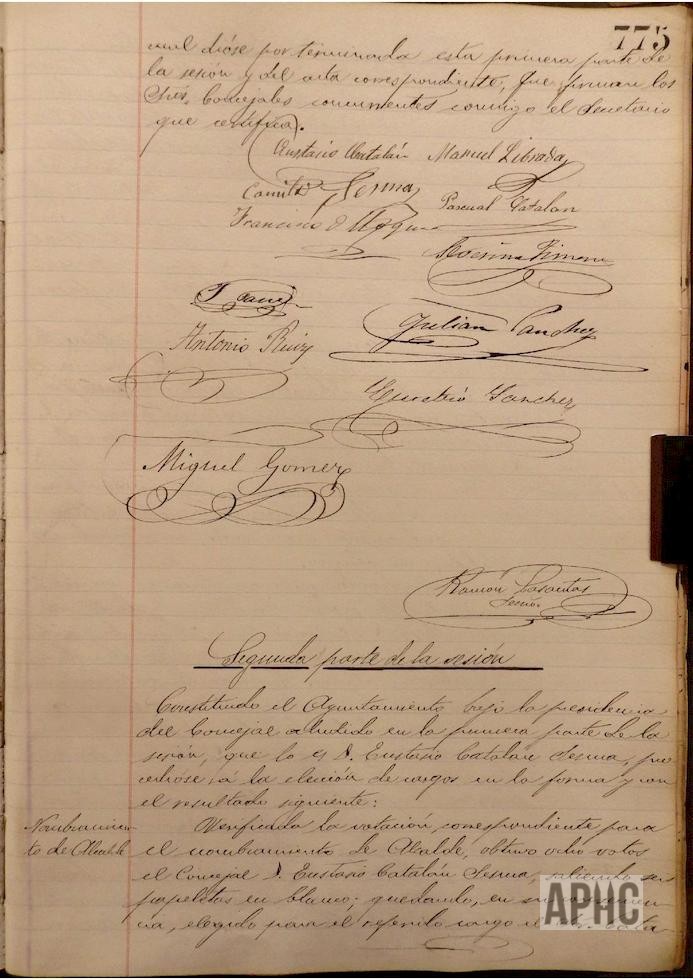 775
cual dióse por terminada esta primera parte de
la sesión y del acta correspondiente, que firman los
Sres. Concejales concurrentes conmigo el Secretario
que certifica.
Eustasio Catalán Manuel Librada
Camilo Sesma
Pascual Catalan
Francisco
Gimeno
Julian Sanchez
Antonio Ruiz
Eusebio Sanchez
Miguel Gomez
Ramón Casantos
Secrio.
Segunda parte de la sesión
Constituido el Ayuntamiento bajo la presidencia
del Concejal aludido en la primera parte de la
sesión, que lo es D. Eustasio Catalán Sesma, pro
cedióse á la elección de cargos en la forma y con
el resultado siguiente:
Nombramien
to de Alcalde
Verificada la votación, correspondiente para
el nombramiento de Alcalde, obtuvo ocho votos
el Concejal D. Eustasio Catalán Sesma, saliendo
papeletas en blanco; quedando, en su consecuen
cia, elegido para el referido cargo
APHC